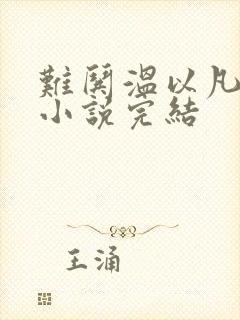 難鬨溫以凡
小說完結
王涌